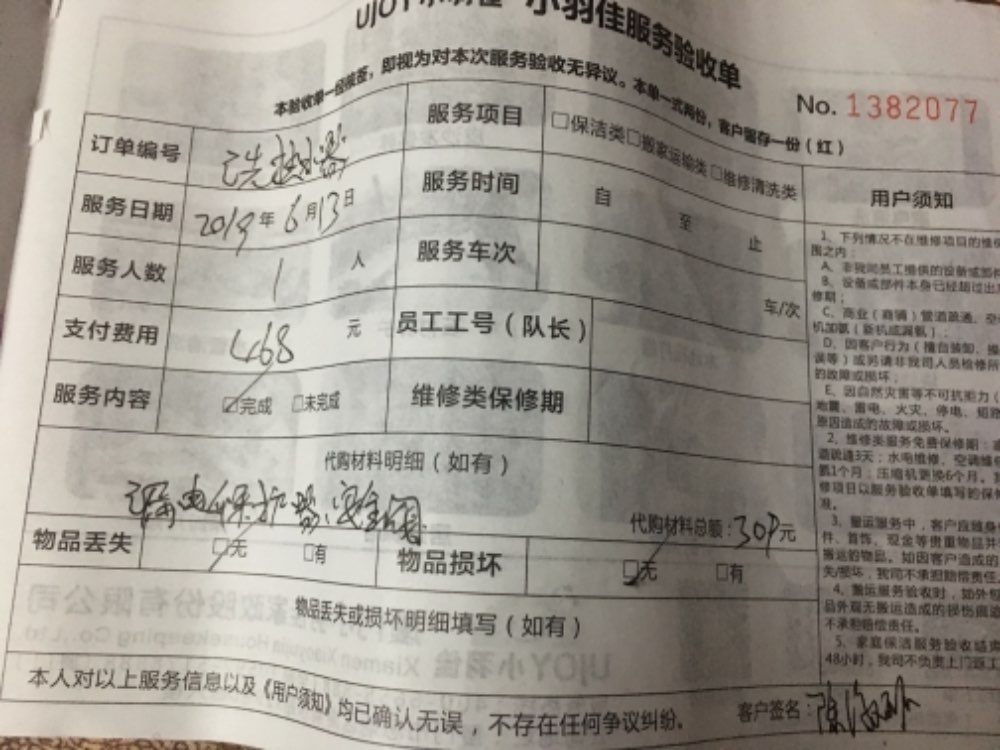 小羽佳服务验收单
本验收单一经核签，即视为对本次服务验收无异议。本单一式两份，客户留存一份（红）
No. 1382077
订单编号 洗热水器 服务项目 □保洁类□搬家运输类□维修清洗类
服务日期 2019年6月13日 服务时间 自 至 止
服务人数 1 人 服务车次 车/次
支付费用 468 元 员工工号（队长）
服务内容 ☑完成 □未完成 维修类保修期
代购材料明细（如有）
漏电保护器、安全阀
代购材料总额：309元
物品丢失 ☑无 □有 物品损坏 ☑无 □有
物品丢失或损坏明细填写（如有）
本人对以上服务信息以及《用户须知》均已确认无误，不存在任何争议纠纷.
客户签名：
用户须知
1、下列情况不在维修项目的维修
围之内：
A、非我司员工提供的设备或部件
B、设备或部件本身已经超过出
修期；
C、商业（商铺）管道疏通、空
机加氨（新机或漏氨）；
D、因客户行为（擅自装卸、
误等）或另请非我司人员检修所
的故障或损坏；
E、因自然灾害等不可抗能力（
地震、雷电、火灾、停电、短路
原因造成的故障或损坏。
2、维修类服务免费保修期：
道疏通3天；水电维修、空调维
氟1个月；压缩机更换6个月。
修项目以服务验收单填写的保
准。
3、搬运服务中，客户应随身
件、首饰、现金等贵重物品并
搬运的物品。如因客户造成的
失/损坏，我司不承担赔偿责任
4、搬运服务验收时，如外
品外观无搬运造成的损伤痕迹
不承担赔偿责任。
5、家庭保洁服务验收结束
48小时，我司不负责上门返工